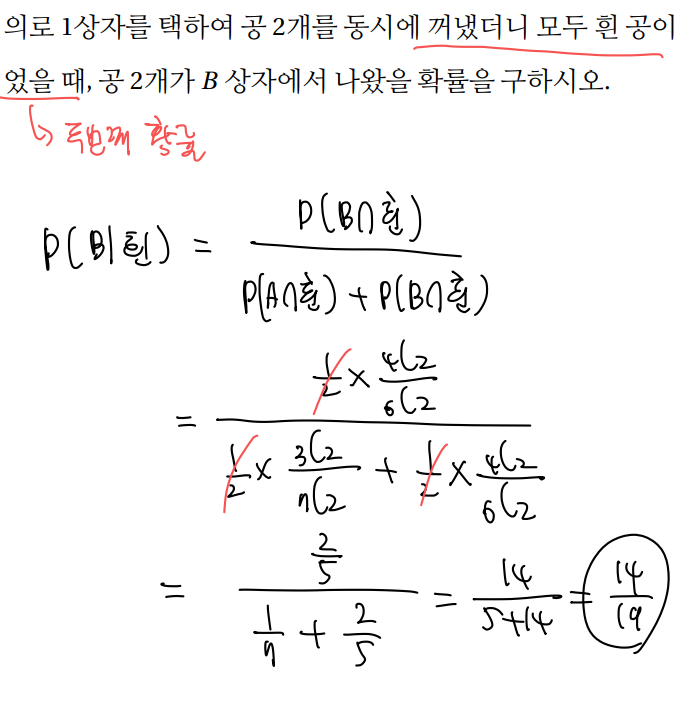 의로 1상자를 택하여 공 2개를 동시에 꺼냈더니 모두 흰 공이
었을 때, 공 2개가 B 상자에서 나왔을 확률을 구하시오.
↳ 두번째 확률
P(B|흰) = P(B∩흰) / P(A∩흰) + P(B∩흰)
= 1/2 × 4C2/6C2 / 1/2 × 3C2/7C2 + 1/2 × 4C2/6C2
= 2/5 / 1/7 + 2/5 = 14 / 5+14 = 14/19